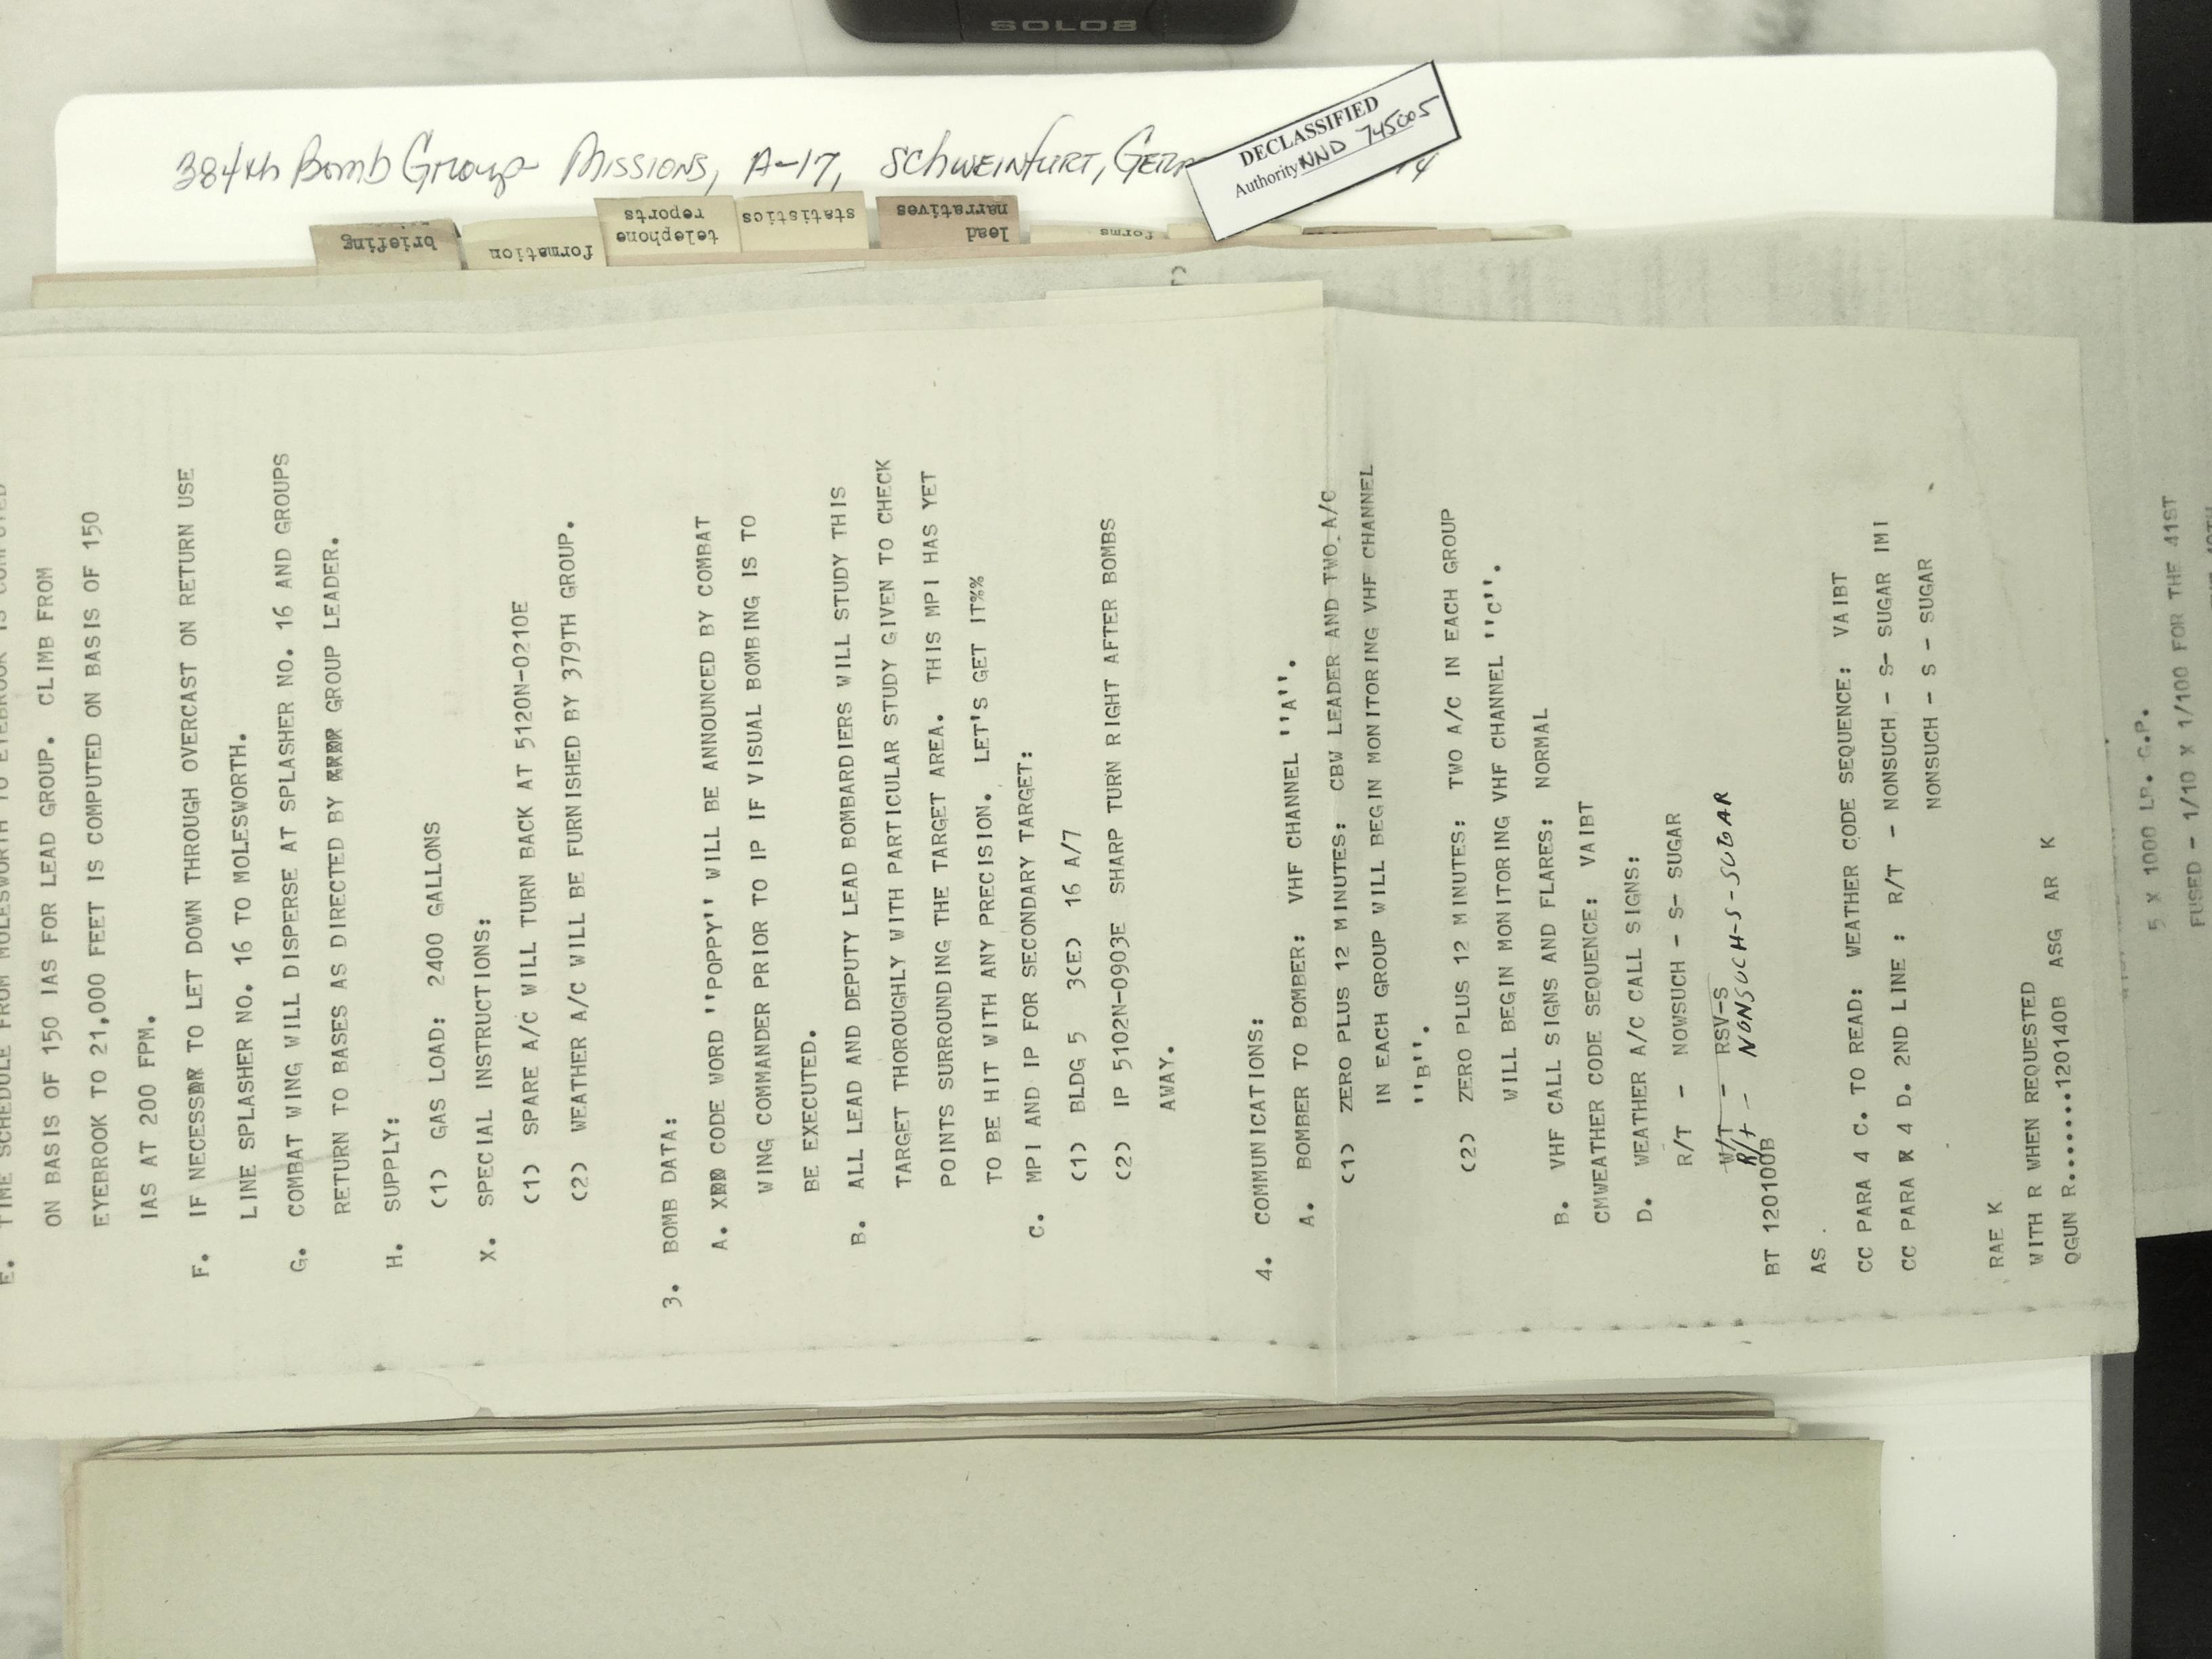 SOLO8
384th Bomb Group Missions, A-17, Schweinfurt,
DECLASSIFIED
Authority NND 745005
briefing
formation
telephone
reports
statistics
lead
narratives
forms
E. TIME SCHEDULE FROM MOLESWORTH TO EYEBROOK IS COMPUTED
ON BASIS OF 150 IAS FOR LEAD GROUP. CLIMB FROM
EYEBROOK TO 21,000 FEET IS COMPUTED ON BASIS OF 150
IAS AT 200 FPM.
F. IF NECESS TO LET DOWN THROUGH OVERCAST ON RETURN USE
LINE SPLASHER NO. 16 TO MOLESWORTH.
G. COMBAT WING WILL DISPERSE AT SPLASHER NO. 16 AND GROUPS
RETURN TO BASES AS DIRECTED BY GROUP LEADER.
H. SUPPLY:
(1) GAS LOAD: 2400 GALLONS
X. SPECIAL INSTRUCTIONS:
(1) SPARE A/C WILL TURN BACK AT 5120N-0210E
(2) WEATHER A/C WILL BE FURNISHED BY 379TH GROUP.
3. BOMB DATA:
A. CODE WORD ''POPPY'' WILL BE ANNOUNCED BY COMBAT
WING COMMANDER PRIOR TO IP IF VISUAL BOMBING IS TO
BE EXECUTED.
B. ALL LEAD AND DEPUTY LEAD BOMBARDIERS WILL STUDY THIS
TARGET THOROUGHLY WITH PARTICULAR STUDY GIVEN TO CHECK
POINTS SURROUNDING THE TARGET AREA. THIS MPI HAS YET
TO BE HIT WITH ANY PRECISION. LET'S GET IT%%
C. MPI AND IP FOR SECONDARY TARGET:
(1) BLDG 5 3(E) 16 A/7
(2) IP 5102N-0903E SHARP TURN RIGHT AFTER BOMBS
AWAY.
4. COMMUNICATIONS:
A. BOMBER TO BOMBER: VHF CHANNEL ''A''.
(1) ZERO PLUS 12 MINUTES: CBW LEADER AND TWO A/C
IN EACH GROUP WILL BEGIN MONITORING VHF CHANNEL
''B''.
(2) ZERO PLUS 12 MINUTES: TWO A/C IN EACH GROUP
WILL BEGIN MONITORING VHF CHANNEL ''C''.
B. VHF CALL SIGNS AND FLARES: NORMAL
CMWEATHER CODE SEQUENCE: VAIBT
D. WEATHER A/C CALL SIGNS:
R/T - NOWSUCH - S- SUGAR
W/T - RSV-S
R/T - NONSUCH-S-SUGAR
BT 120100B
AS .
CC PARA 4 C. TO READ: WEATHER CODE SEQUENCE: VAIBT
CC PARA 4 D. 2ND LINE : R/T - NONSUCH - S- SUGAR IMI
NONSUCH - S - SUGAR
RAE K
WITH R WHEN REQUESTED
QGUN R.......120140B ASG AR K
5 X 1000 LB. G.P.
FUSED - 1/10 X 1/100 FOR THE 41ST